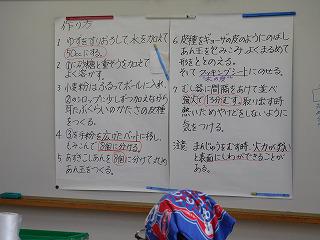 作り方
1 ゆずをすりおろして水を加えて
50ccにする。
2 ①に砂糖と重そうを加えて
よく溶かす。
3 小麦粉はふるってボールに入れ、
②のシロップに少しずつ加えながら
耳たぶくらいのかたさの皮種
をつくる。
4 ③を手粉を広げたバットに移し、
もみこんで8個に分ける。
5 あずきこしあんを8個に分けて丸め
あん玉をつくる。
6 皮種をギョーザの皮のようにのばし
あん玉を包みこみ、よくまるめて
形をととのえる。
そしてクッキングシートにのせる。
7 むし器に間隔をあけて並べ
強火で15分むす。取り出す時
熱いためやけどをしないように
気をつける。
注意 まんじゅうをむす時、火力が強い
と表面にしわができることが
ある。